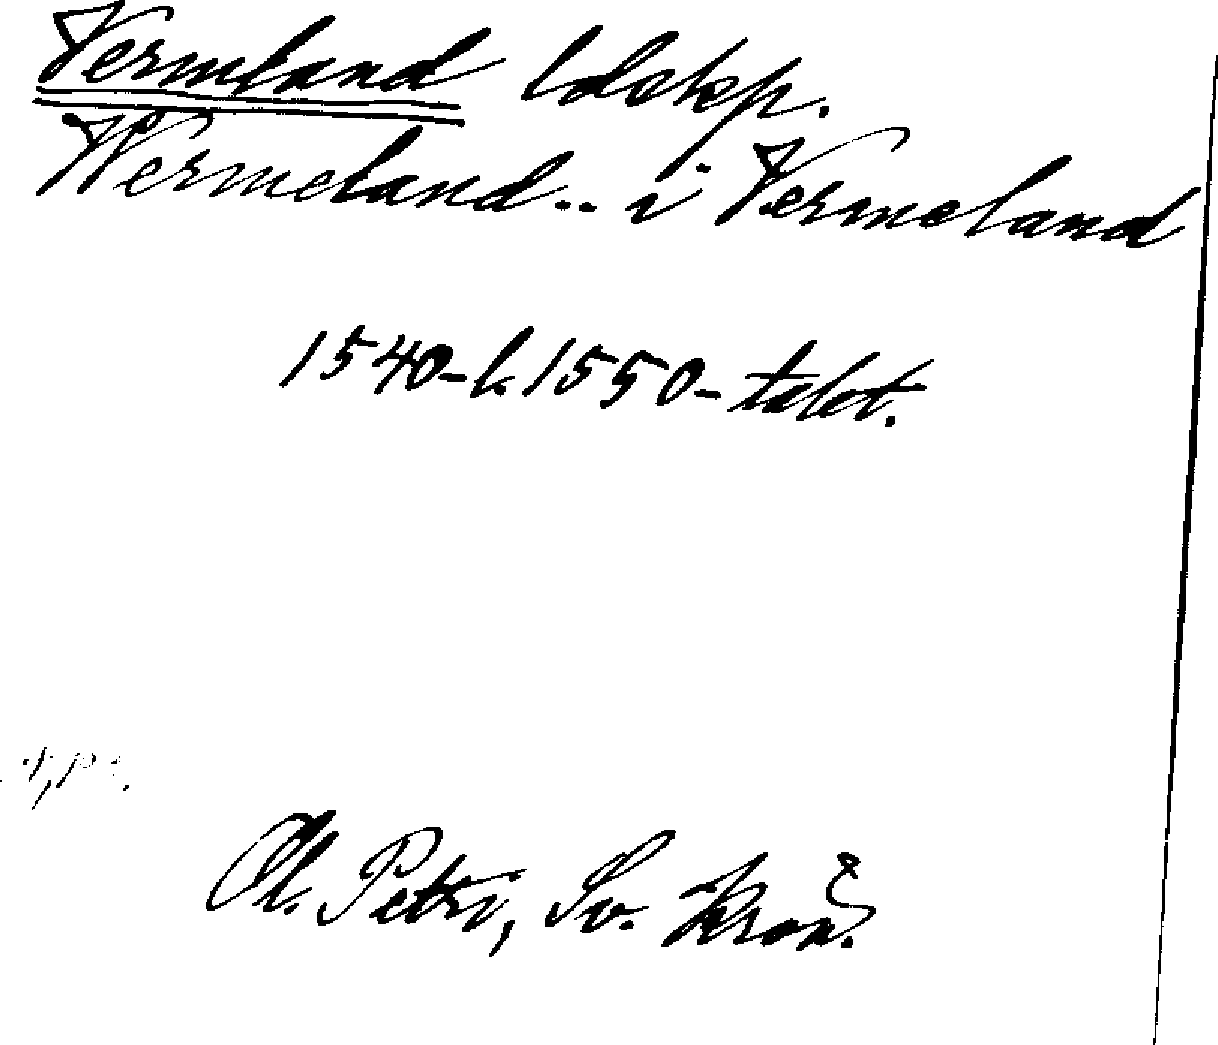 Vermland ldskp.
Wermeland.. i Vermeland
1540- l. 1550-talet.
Ol. Petri, Sv. Krön.